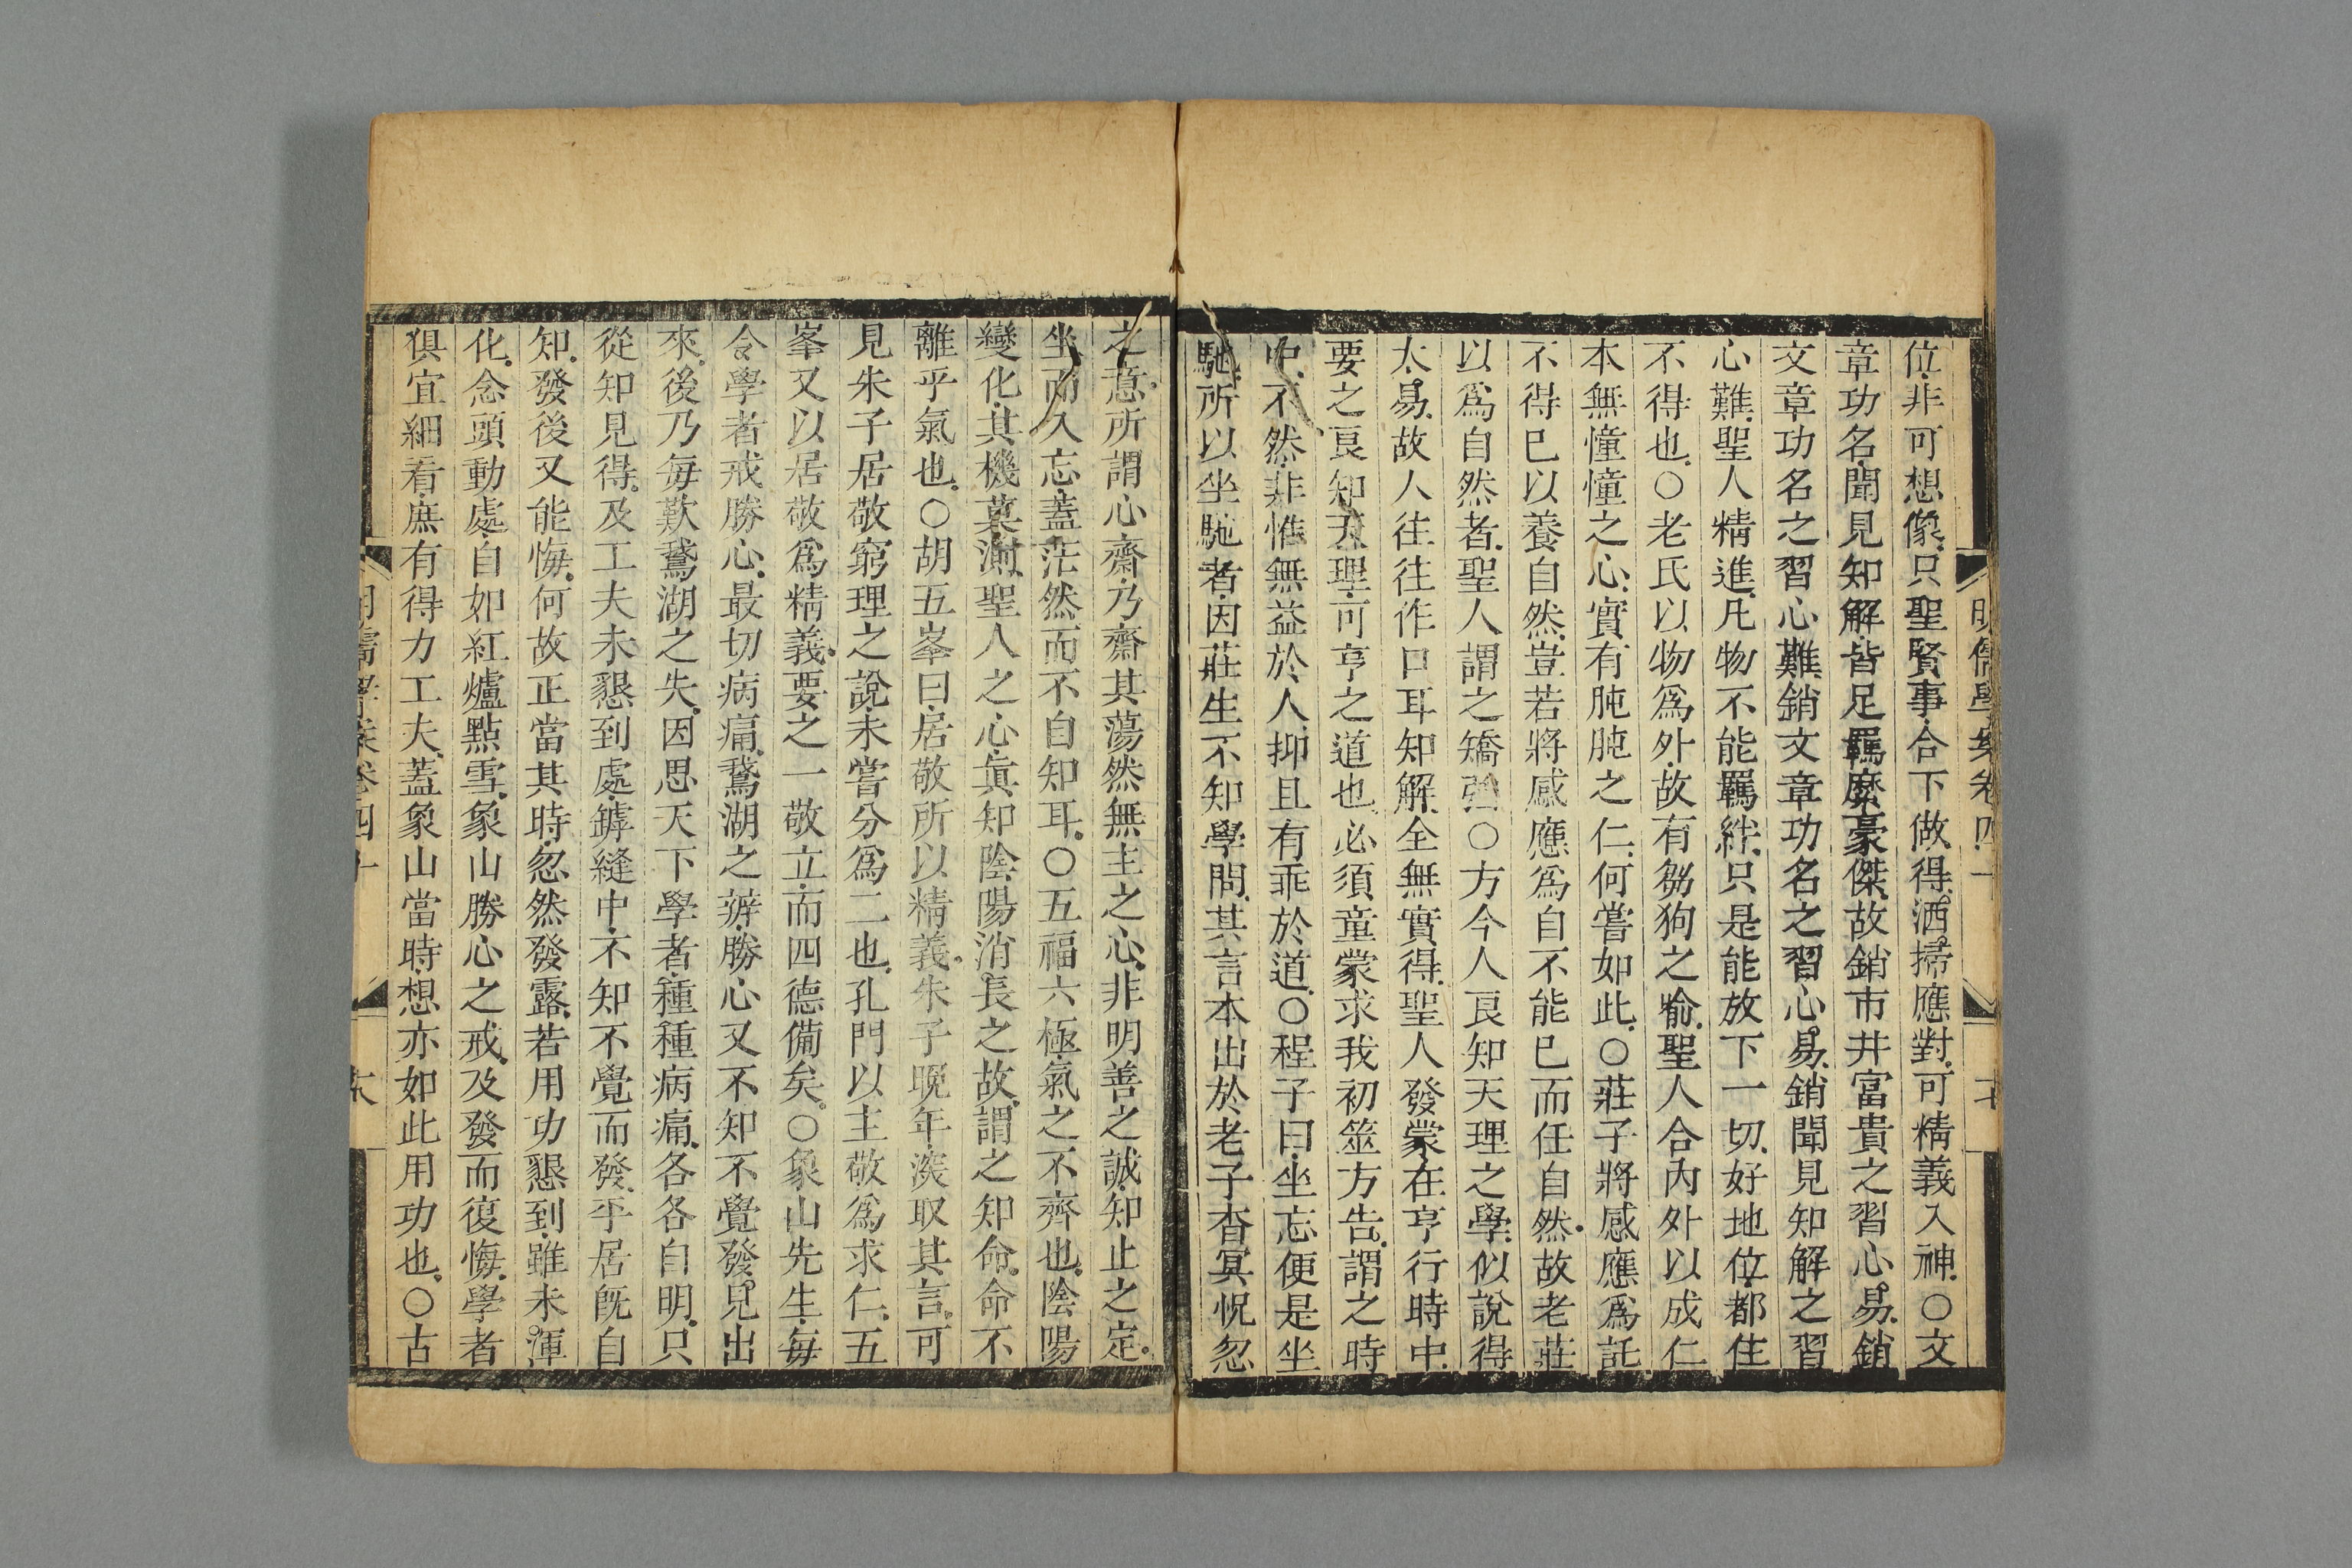 明儒學案卷四十
位非可想像只聖賢事合下做得洒掃應對可精義入神○文
章功名聞見知解皆足羈縻豪傑故銷市井富貴之習心易銷
文章功名之習心難銷文章功名之習心易銷聞見知解之習
心難聖人精進凡物不能羈絆只是能放下一切好地位都住
不得也○老氏以物爲外故有芻狗之喻聖人合內外以成仁
本無憧憧之心實有肫肫之仁何嘗如此○莊子將感應爲託
不得已以養自然豈若將感應爲自不能已而任自然故老莊
以爲自然者聖人謂之矯強○方今人良知天理之學似說得
太易故人往往作口耳知解全無實得聖人發蒙在亨行時中
要之良知天理可亨之道也必須童蒙求我初筮方告謂之時
中不然非惟無益於人抑且有乖於道○程子曰坐忘便是坐
馳所以坐馳者因莊生不知學問其言本出於老子杳冥怳忽
之意所謂心齋乃齋其蕩然無主之心非明善之誠知止之定
坐而入忘蓋茫然而不自知耳○五福六極氣之不齊也陰陽
變化其機莫測聖人之心眞知陰陽消長之故謂之知命命不
離乎氣也○胡五峯曰居敬所以精義朱子晚年深取其言可
見朱子居敬窮理之說未嘗分爲二也孔門以主敬爲求仁五
峯又以居敬爲精義要之一敬立而四德備矣○象山先生每
令學者戒勝心最切病痛鵞湖之辨勝心又不知不覺發見出
來後乃每歎鵞湖之失因思天下學者種種病痛各各自明只
從知見得及工夫未懇到處罅縫中不知不覺而發平居旣自
知發後又能悔何故正當其時忽然發露若用功懇到雖未渾
化念頭動處自如紅爐點雪象山勝心之戒及發而復悔學者
俱宜細看庶有得力工夫蓋象山當時想亦如此用功也○古
明儒學案卷四十